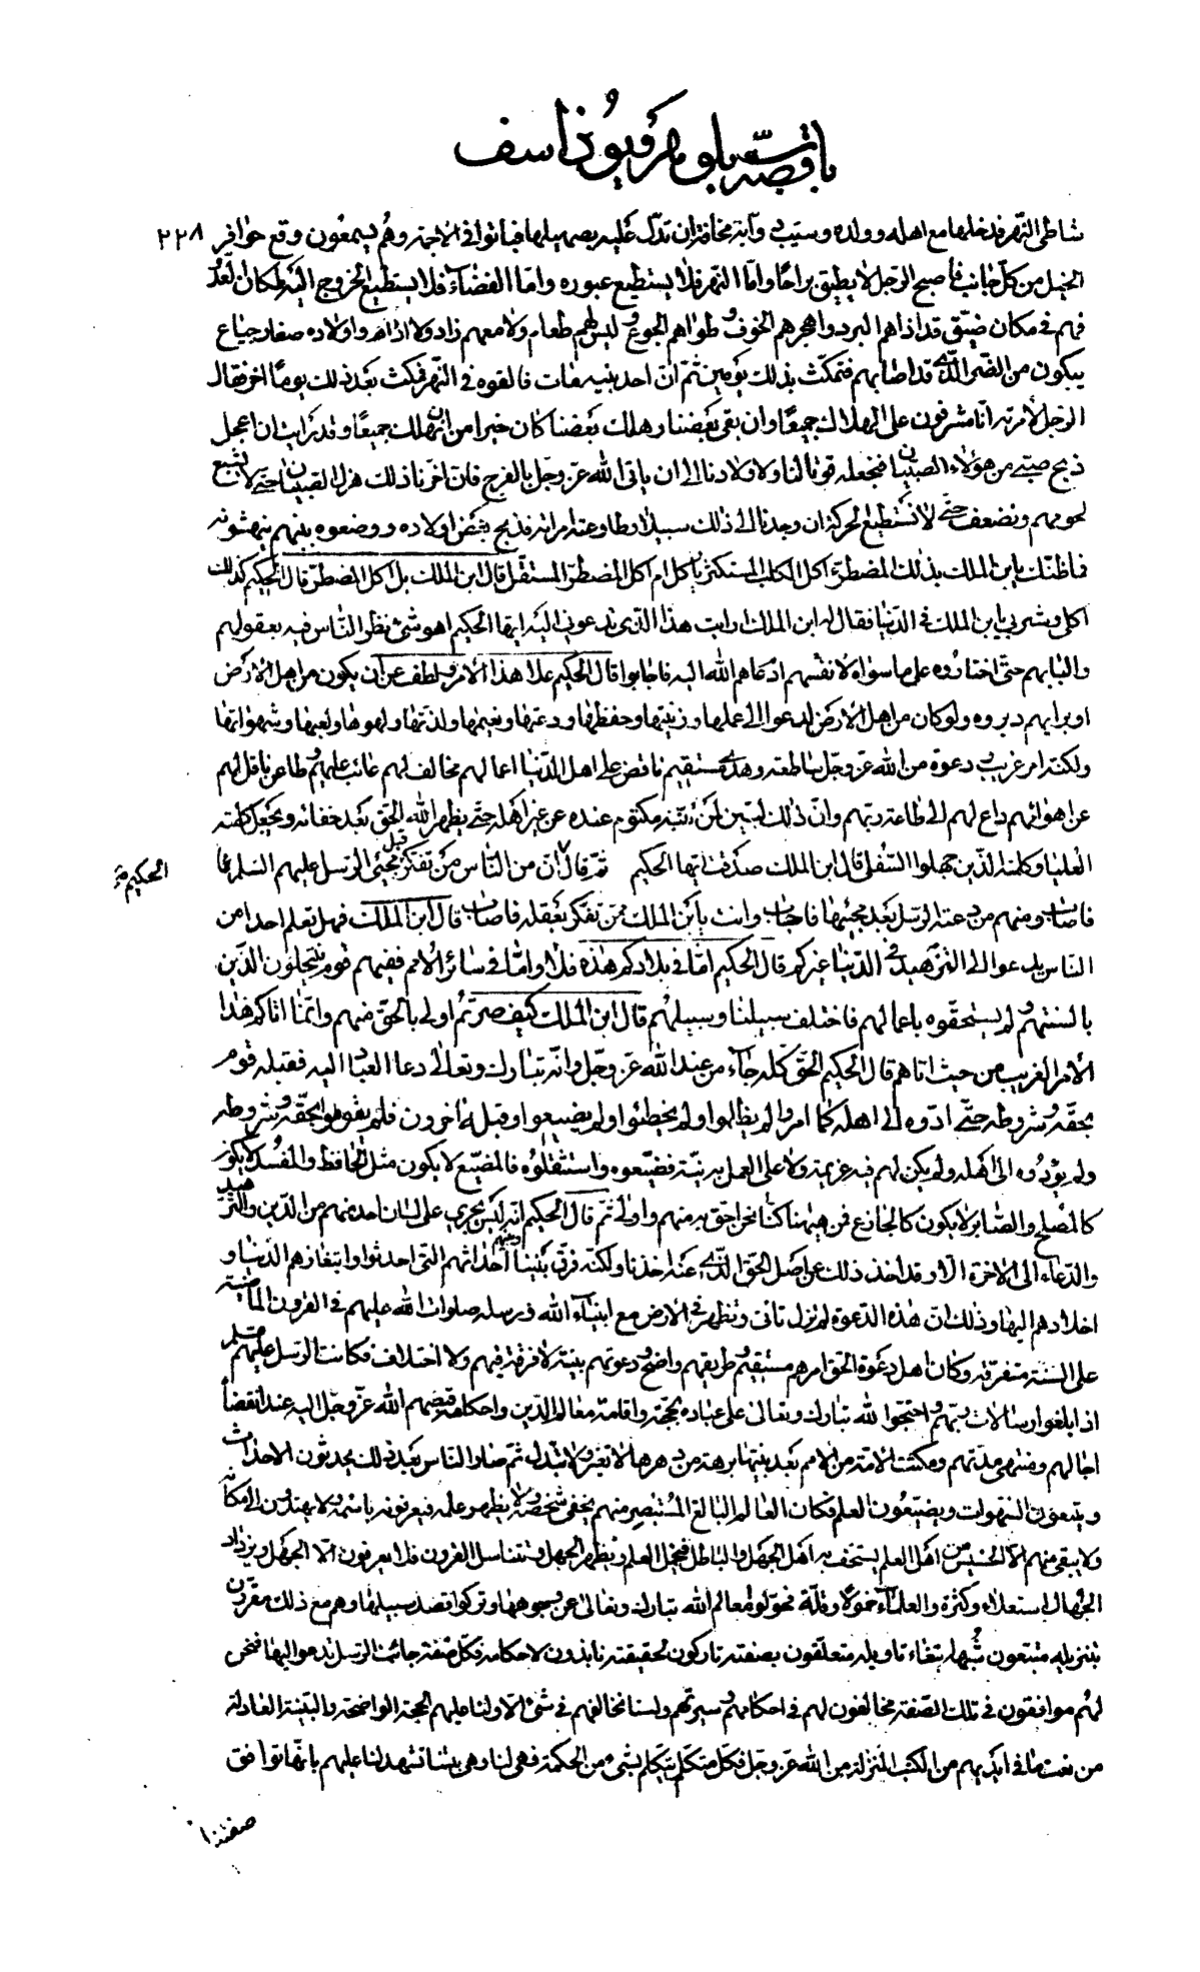 باقصّة بلوهر و يوذاسف
٢٢٨
شاطئ النهر فدخلها مع اهله وولده وسيب دوابه مخافة ان تدل عليه بصهيلها فباتوا في الاجمة وهم يسمعون وقع حوافر
الخيل من كل جانب فاصبح الرجل لا يطيق براحا واما النهر فلا يستطيع عبوره واما الفضاء فلا يستطيع الخروج اليه لمكان العدو
فهم في مكان ضيق قد اذاهم البرد واهجرهم الخوف وطواهم الجوع وليس لهم طعام ولا معهم زاد ولا ادام واولاده صغار جياع
يبكون من الضر الذي قد اصابهم فمكث بذلك يومين ثم ان احد بنيه مات فالقوه في النهر فمكث بعد ذلك يوما اخر فقال
الرجل لامرته انا مشرفون على الهلاك جميعا وان بقى بعضنا وهلك بعضنا كان خيرا من ان نهلك جميعا وقد رايت ان اعجل
ذبح صبي من هؤلاء الصبيان فنجعله قوتا لنا ولاولادنا الى ان ياتى الله عز وجل بالفرج فان اخرنا ذلك هزل الصبيان حتى لا يشبع
لحومهم ونضعف حتى لا نستطيع الحركة ان وجدنا الى ذلك سبيلا وطاوعته امراته فذبح بعض اولاده ووضعوه بينهم ينهشونه
فما ظنك يابن الملك بذلك المضطر اكل الكلب المستكثر ياكل ام اكل المضطر المستقل قال ابن الملك بل اكل المضطر قال الحكيم كذلك
اكلى وشربى يابن الملك في الدنيا فقال له ابن الملك ارايت هذا الذى تدعونى اليه ايها الحكيم اهو شئ نظر الناس فيه بعقولهم
والبابهم حتى اختاروه على ما سواه لانفسهم ام دعاهم الله اليه فاجابوا قال الحكيم علا هذا الامر ولطف عن ان يكون من اهل الارض
او برايهم دبروه ولو كان من اهل الارض لدعوا الى عملها وزينتها وحفظها ودعتها ونعيمها ولذتها ولهوها ولعبها وشهواتها
ولكنه امر غريب ودعوة من الله عز وجل ساطعة وهدى مستقيم ناقض على اهل الدنيا اعمالهم مخالف لهم عائب عليهم وطاعن ناقل لهم
عن اهوائهم داع لهم الى طاعة ربهم وان ذلك لبين لمن تنبه مكتوم عنده عن غير اهله حتى يظهر الله الحق بعد خفائه ويجعل كلمته
العليا وكلمة الذين جهلوا السفلى قال ابن الملك صدقت ايها الحكيم ثم قال ان من الناس من تفكر قبل مجئ الرسل عليهم السلام
الحكيم
فاصاب ومنهم من دعته الرسل بعد مجيئها فاجاب وانت يابن الملك ممن تفكر بعقله فاصاب قال ابن الملك فهل تعلم احدا من
الناس يدعو الى التزهيد في الدنيا غيركم قال الحكيم اما في بلادكم هذه فلا واما في سائر الامم ففيهم قوم ينتحلون الدين
بالسنتهم ولم يستحقوه باعمالهم فاختلف سبيلنا وسبيلهم قال ابن الملك كيف صرتم اولى بالحق منهم وانما اتاكم هذا
الامر الغريب من حيث اتاهم قال الحكيم الحق كله جاء من عند الله عز وجل وانه تبارك وتعالى دعا العباد اليه فقبله قوم
بحقه وشروطه حتى ادوه الى اهله كما امروا لم يظلموا ولم يخطئوا ولم يضيعوا وقبله اخرون فلم يقوموا بحقه وشروطه
ولم يؤدوه الى اهله ولم يكن لهم فيه عزيمة ولا على العمل به نية فضيعوه واستثقلوه فالمضيع لا يكون مثل الحافظ والمفسد لا يكون
كالمصلح والصابر لا يكون كالجازع فمن هيهنا كنا نحن احق به منهم واولى ثم قال الحكيم انه ليس يجرى على لسان احد منهم من الدين والتزهيد
والدعاء الى الاخرة الا وقد اخذ ذلك عن اصل الحق الذى عنه اخذنا ولكنه فرق بيننا وبينهم احداثهم التى احدثوا وابتغاؤهم الدنيا و
اخلادهم اليها وذلك ان هذه الدعوة لم تزل تاتى وتظهر في الارض مع انبياء الله ورسله صلوات الله عليهم في القرون الماضية
على السنة متفرقة وكان اهل دعوة الحق امرهم مستقيم وطريقهم واضح ودعوتهم بينة لا فرقة فيهم ولا اختلاف فكانت الرسل عليهم السلم
اذا بلغوا رسالات ربهم واحتجوا لله تبارك وتعالى على عباده بحجته واقامة معالم الدين واحكامه قبضهم الله عز وجل اليه عند انقضاء
اجالهم ومنتهى مدتهم ومكثت الامة من الامم بعد نبيها برهة من دهرها لا تغير ولا تبدل ثم صار الناس بعد ذلك يحدثون الاحداث
ويتبعون الشهوات ويضيعون العلم فكان العالم البالغ المستبصر منهم يخفى شخصه ولا يظهر علمه فيعرفونه باسمه ولا يهتدون الى مكانه
ولا يبقى منهم الا الخسيس من اهل العلم يستخف به اهل الجهل والباطل فيخمل العلم ويظهر الجهل وتتناسل القرون فلا يعرفون الا الجهل ويزداد
الجهال استعلاء وكثرة والعلماء خمولا وقلة فحولوا معالم الله تبارك وتعالى عن وجوهها وتركوا قصد سبيلها وهم مع ذلك مقرون
بتنزيله متبعون شبهه ابتغاء تاويله متعلقون بصفته تاركون لحقيقته نابذون لاحكامه فكل صفة جائت الرسل تدعو اليها فنحن
لهم موافقون في تلك الصفة مخالفون لهم في احكامهم وسيرتهم ولسنا نخالفهم في شئ الا ولنا عليهم الحجة الواضحة والبينة العادلة
من نعت ما في ايديهم من الكتب المنزلة من الله عز وجل فكل متكلم يتكلم بشئ من الحكمة فهى لنا وهى بيننا تشهد لنا عليهم بانها توافق
صفتنا